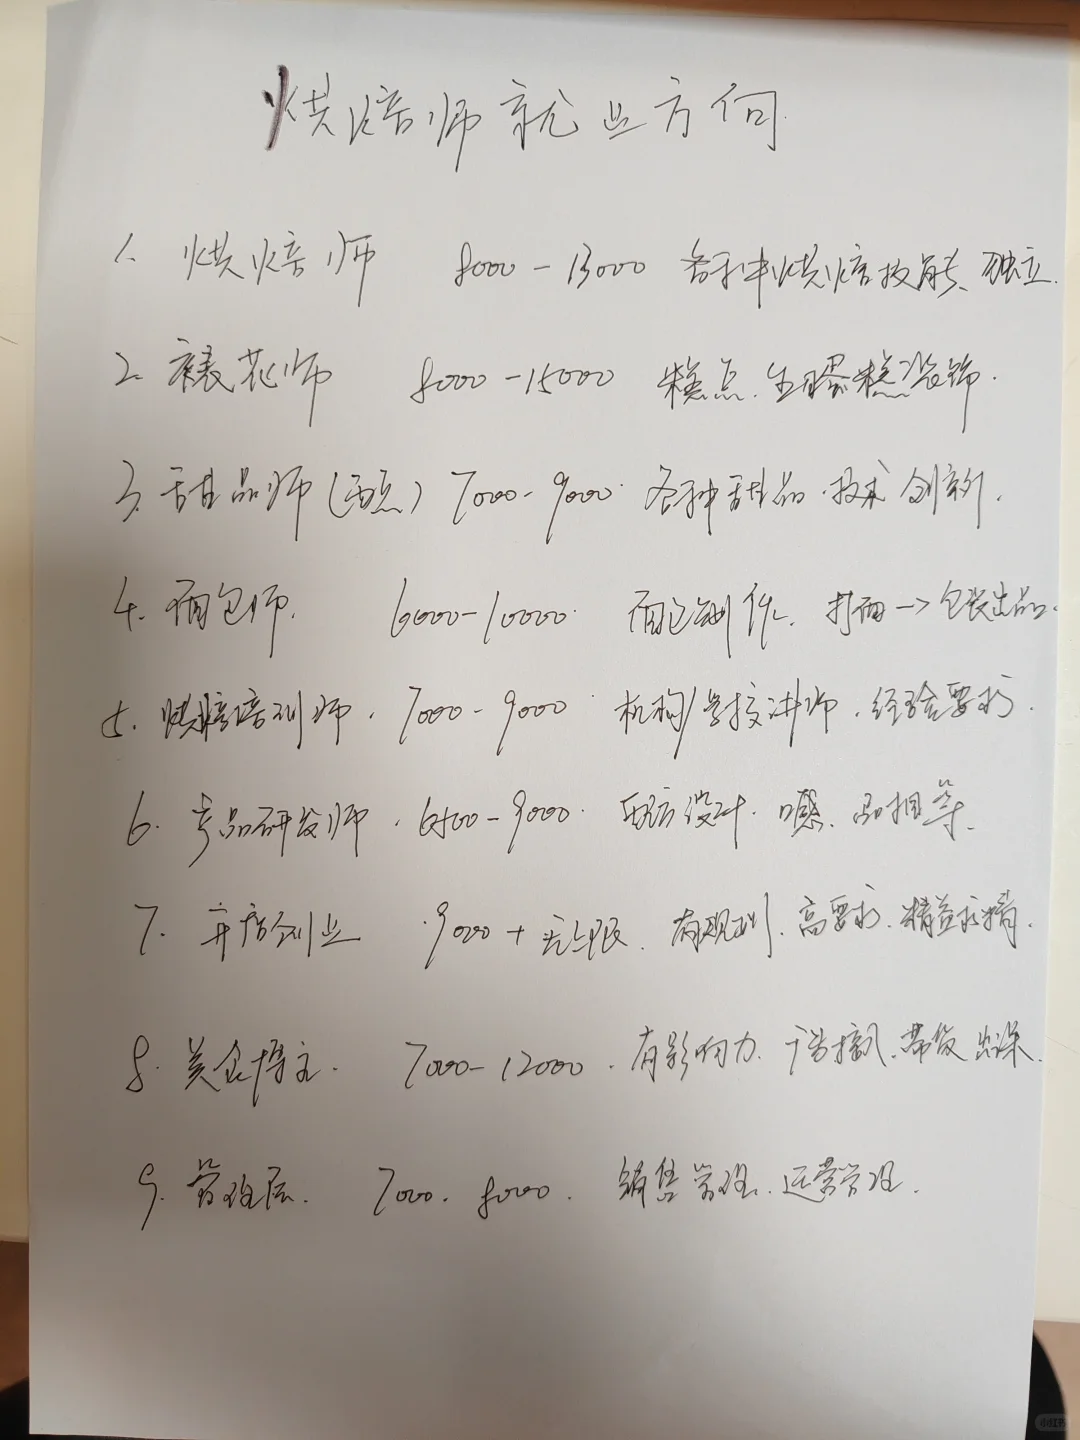 烘焙师就业方向
1. 烘焙师 8000-13000 各种烘焙技能、独立.
2. 裱花师 8000-15000 糕点、生日蛋糕装饰.
3. 甜品师(西点) 7000-9000 各种甜品.技术创新.
4. 面包师. 6000-10000 面包制作、打面→包装出品.
5. 烘焙培训师. 7000-9000 机构/学校讲师.经验要求.
6. 产品研发师. 6500-9000 配方设计.口感、品相等.
7. 开店创业 9000+无上限. 有规划.高要求.精益求精.
8. 美食博主. 7000-12000.有影响力.广告接、带货
9. 管理层. 7000.8000. 销售管理、运营管理.